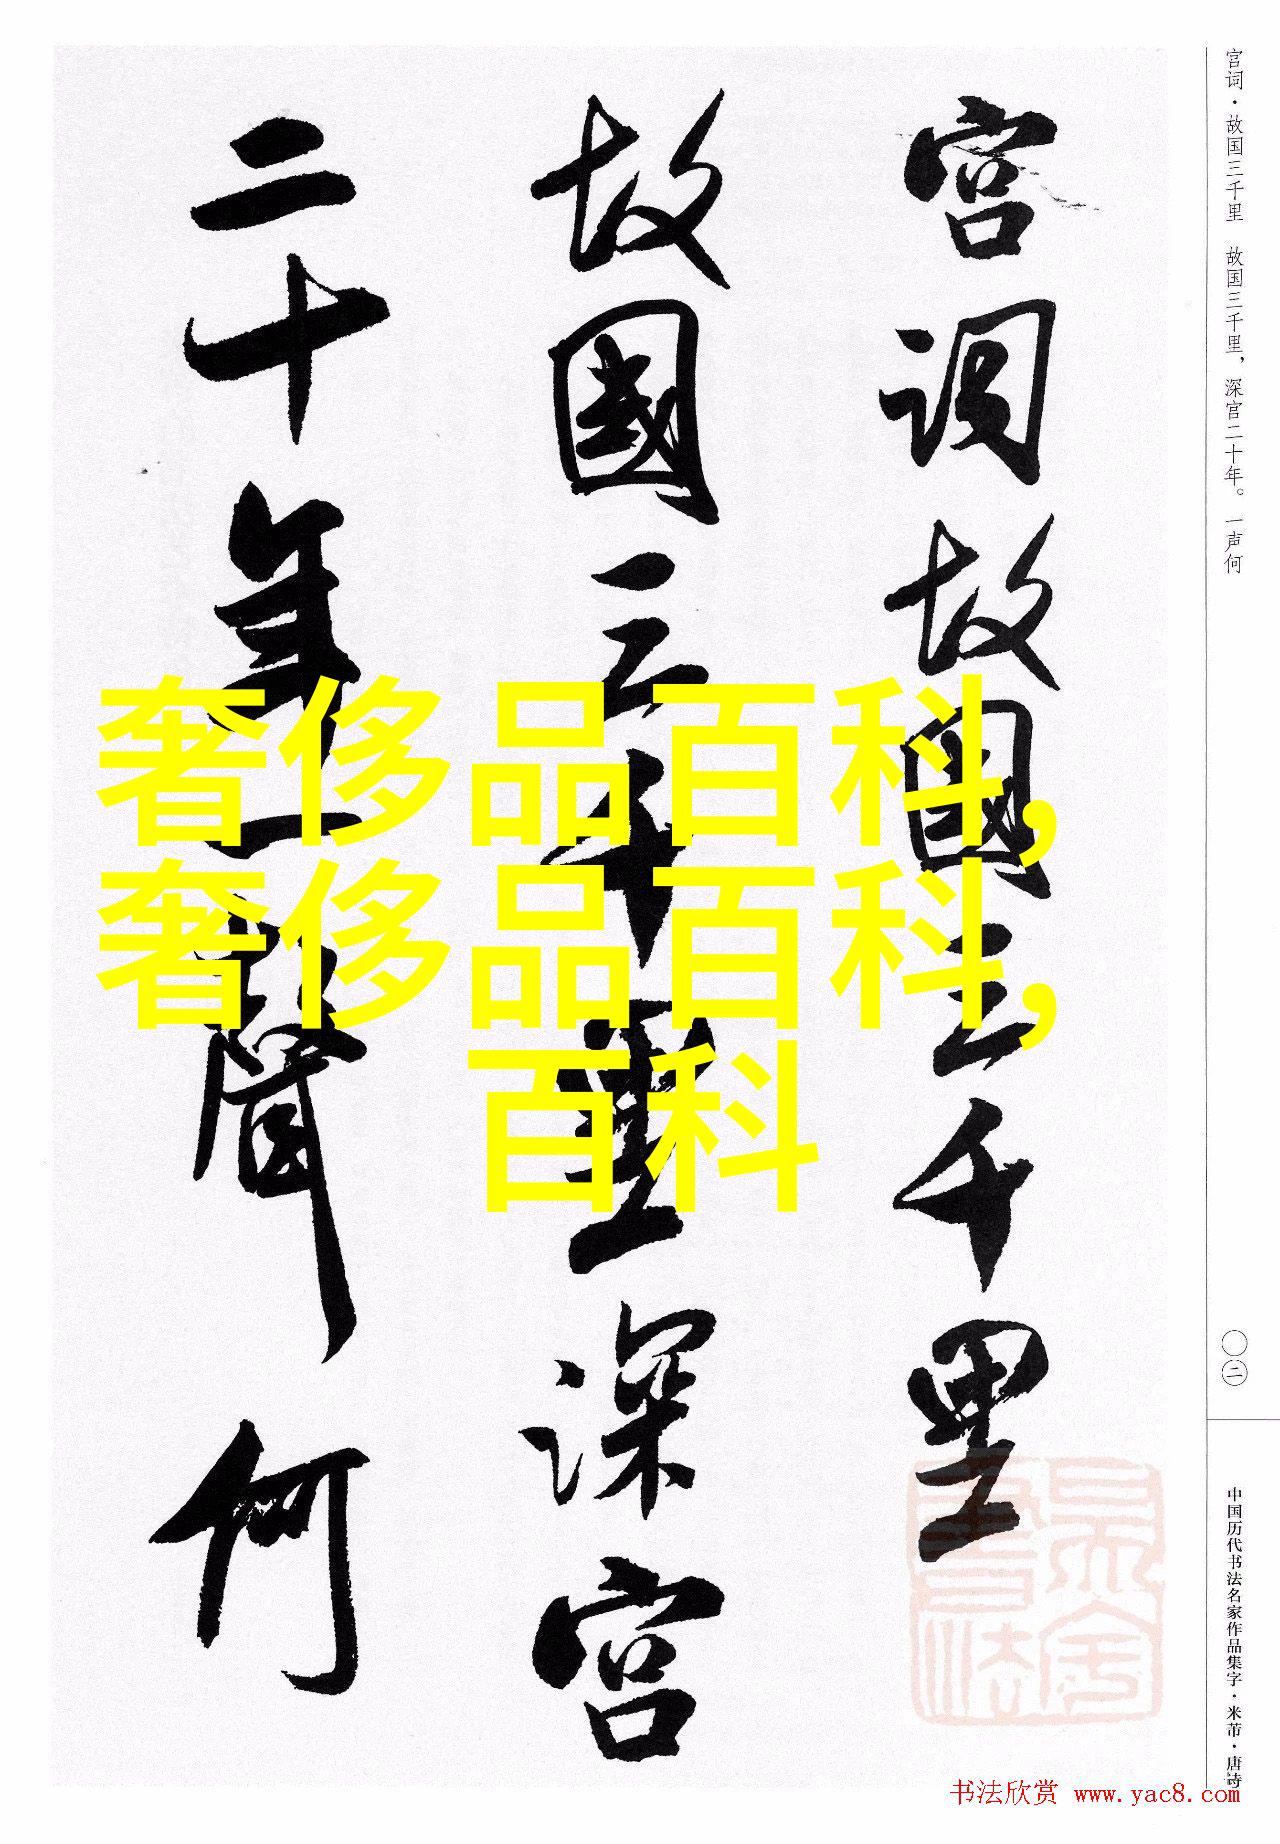 宫词·故国三千里　故国三千里，深宫二十年。一声何
宫词故國三千里
故國三千里深宫
二十年一聲何
奢侈品百科，
奢侈品百科，
百科
〇二
中国历代书法名家作品集字·米芾·唐诗
书法欣赏 www.yac8.com